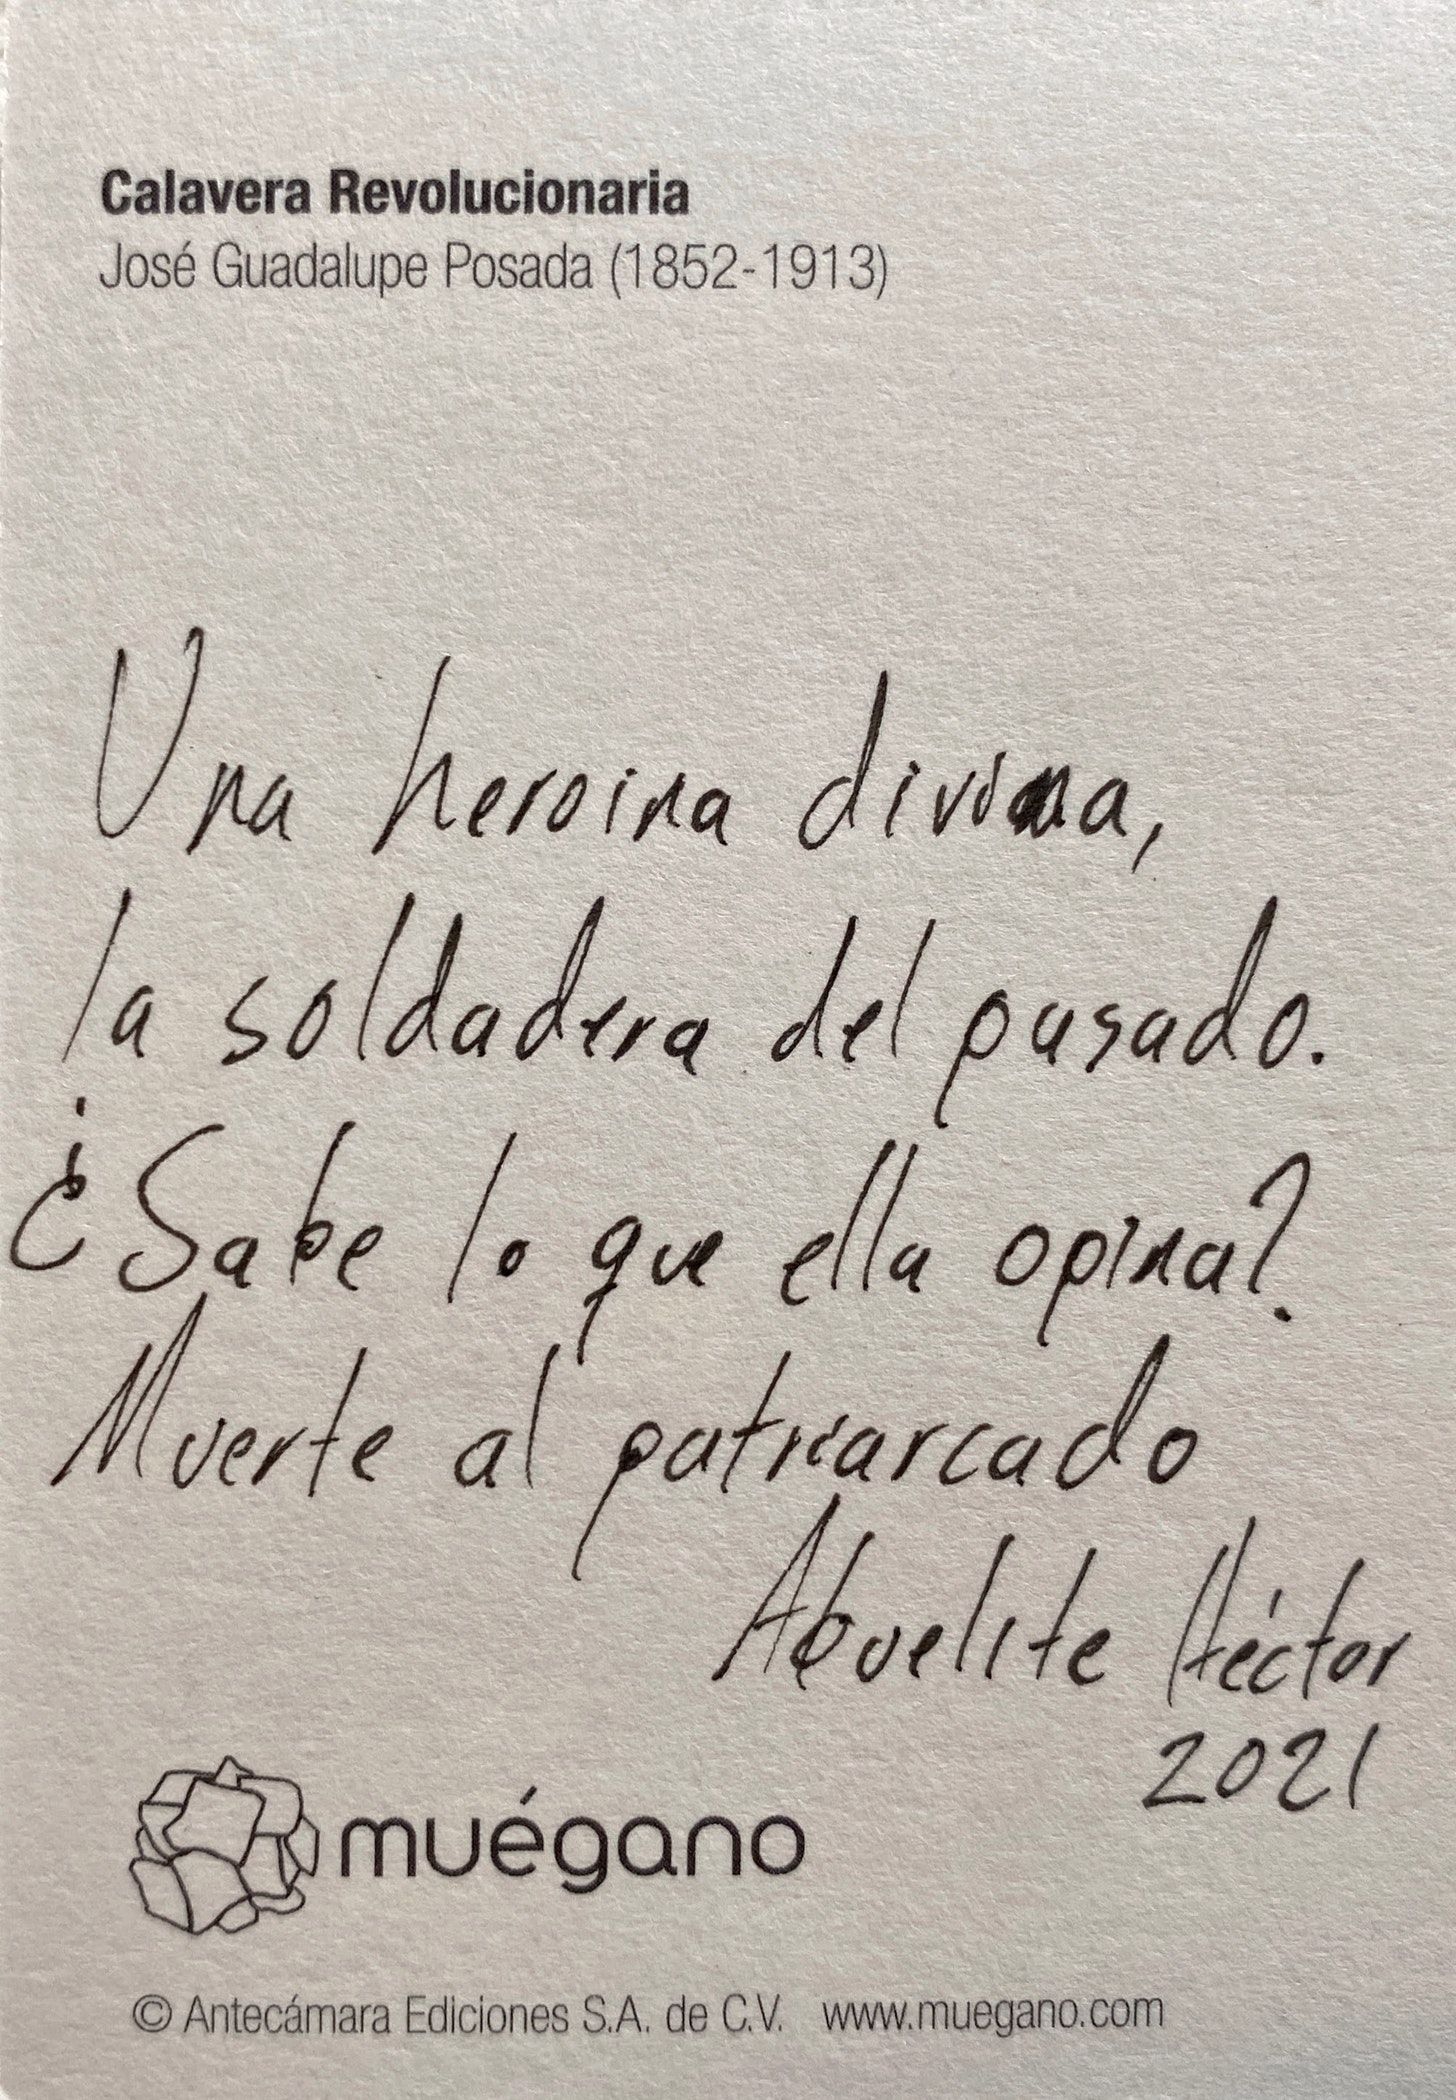 Calavera Revolucionaria
José Guadalupe Posada (1852-1913)
Una heroina divina,
la soldadera del pasado.
¿Sabe lo que ella opina?
Muerte al patriarcado
Abuelite Héctor
2021
muégano
© Antecámara Ediciones S.A. de C.V. www.muegano.com